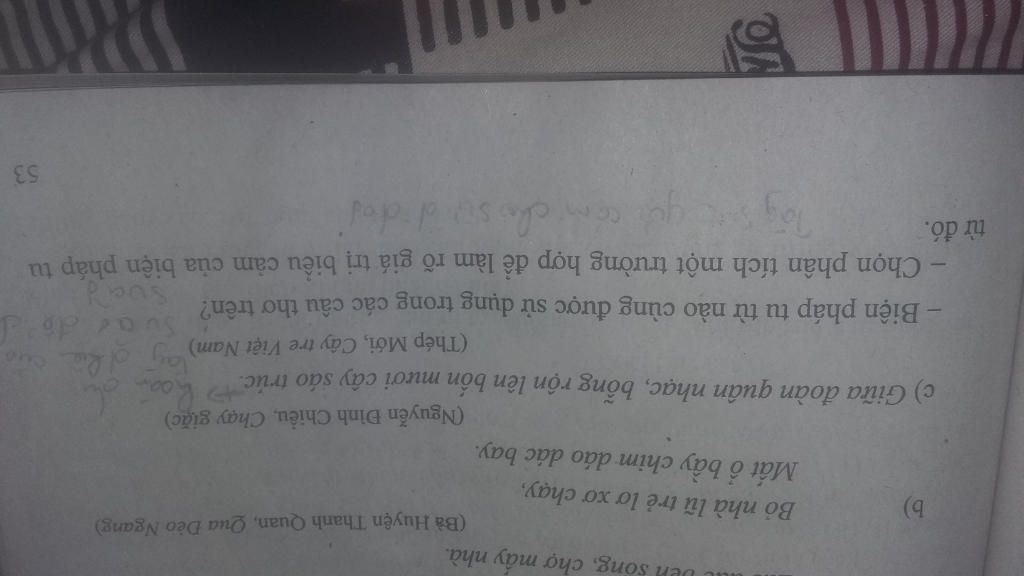 bên sông, chợ mấy nhà.
(Bà Huyện Thanh Quan, Qua Đèo Ngang)
b) Bỏ nhà lũ trẻ lơ xơ chạy,
Mất ổ bầy chim dáo dác bay.
(Nguyễn Đình Chiểu, Chạy giặc)
c) Giữa đoàn quân nhạc, bỗng rộn lên bốn mươi cây sáo trúc.
(Thép Mới, Cây tre Việt Nam)
– Biện pháp tu từ nào cùng được sử dụng trong các câu thơ trên?
– Chọn phân tích một trường hợp để làm rõ giá trị biểu cảm của biện pháp tu
từ đó.
53